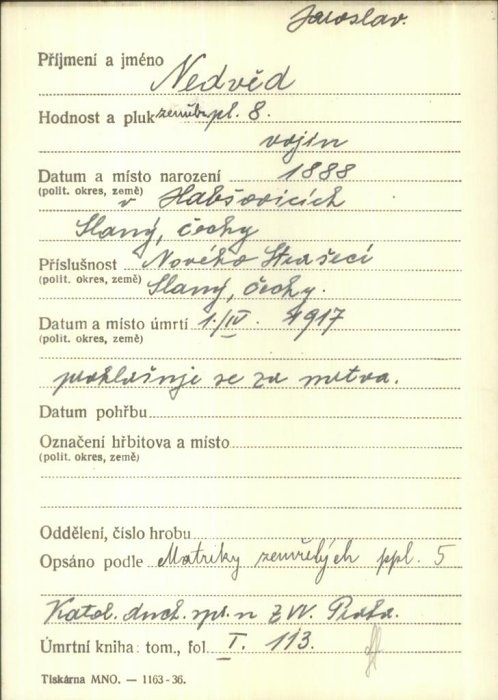 Jaroslav.
Příjmení a jméno Nedvěd
Hodnost a pluk zeměbr. pl. 8.
vojín
Datum a místo narození 1888
(polit. okres, země) v Habšovicích
Slaný, Čechy
Příslušnost Nového Strašecí
(polit. okres, země) Slaný, Čechy.
Datum a místo úmrtí 1./IV. 1917
(polit. okres, země)
prohlašuje se za mrtva.
Datum pohřbu
Označení hřbitova a místo
(polit. okres, země)
Oddělení, číslo hrobu
Opsáno podle Matriky zemřelých ppl. 5
Katol. duch. spr. n ZVV. Praha.
Úmrtní kniha: tom., fol. I. 113.
Tiskárna MNO. — 1163-36.